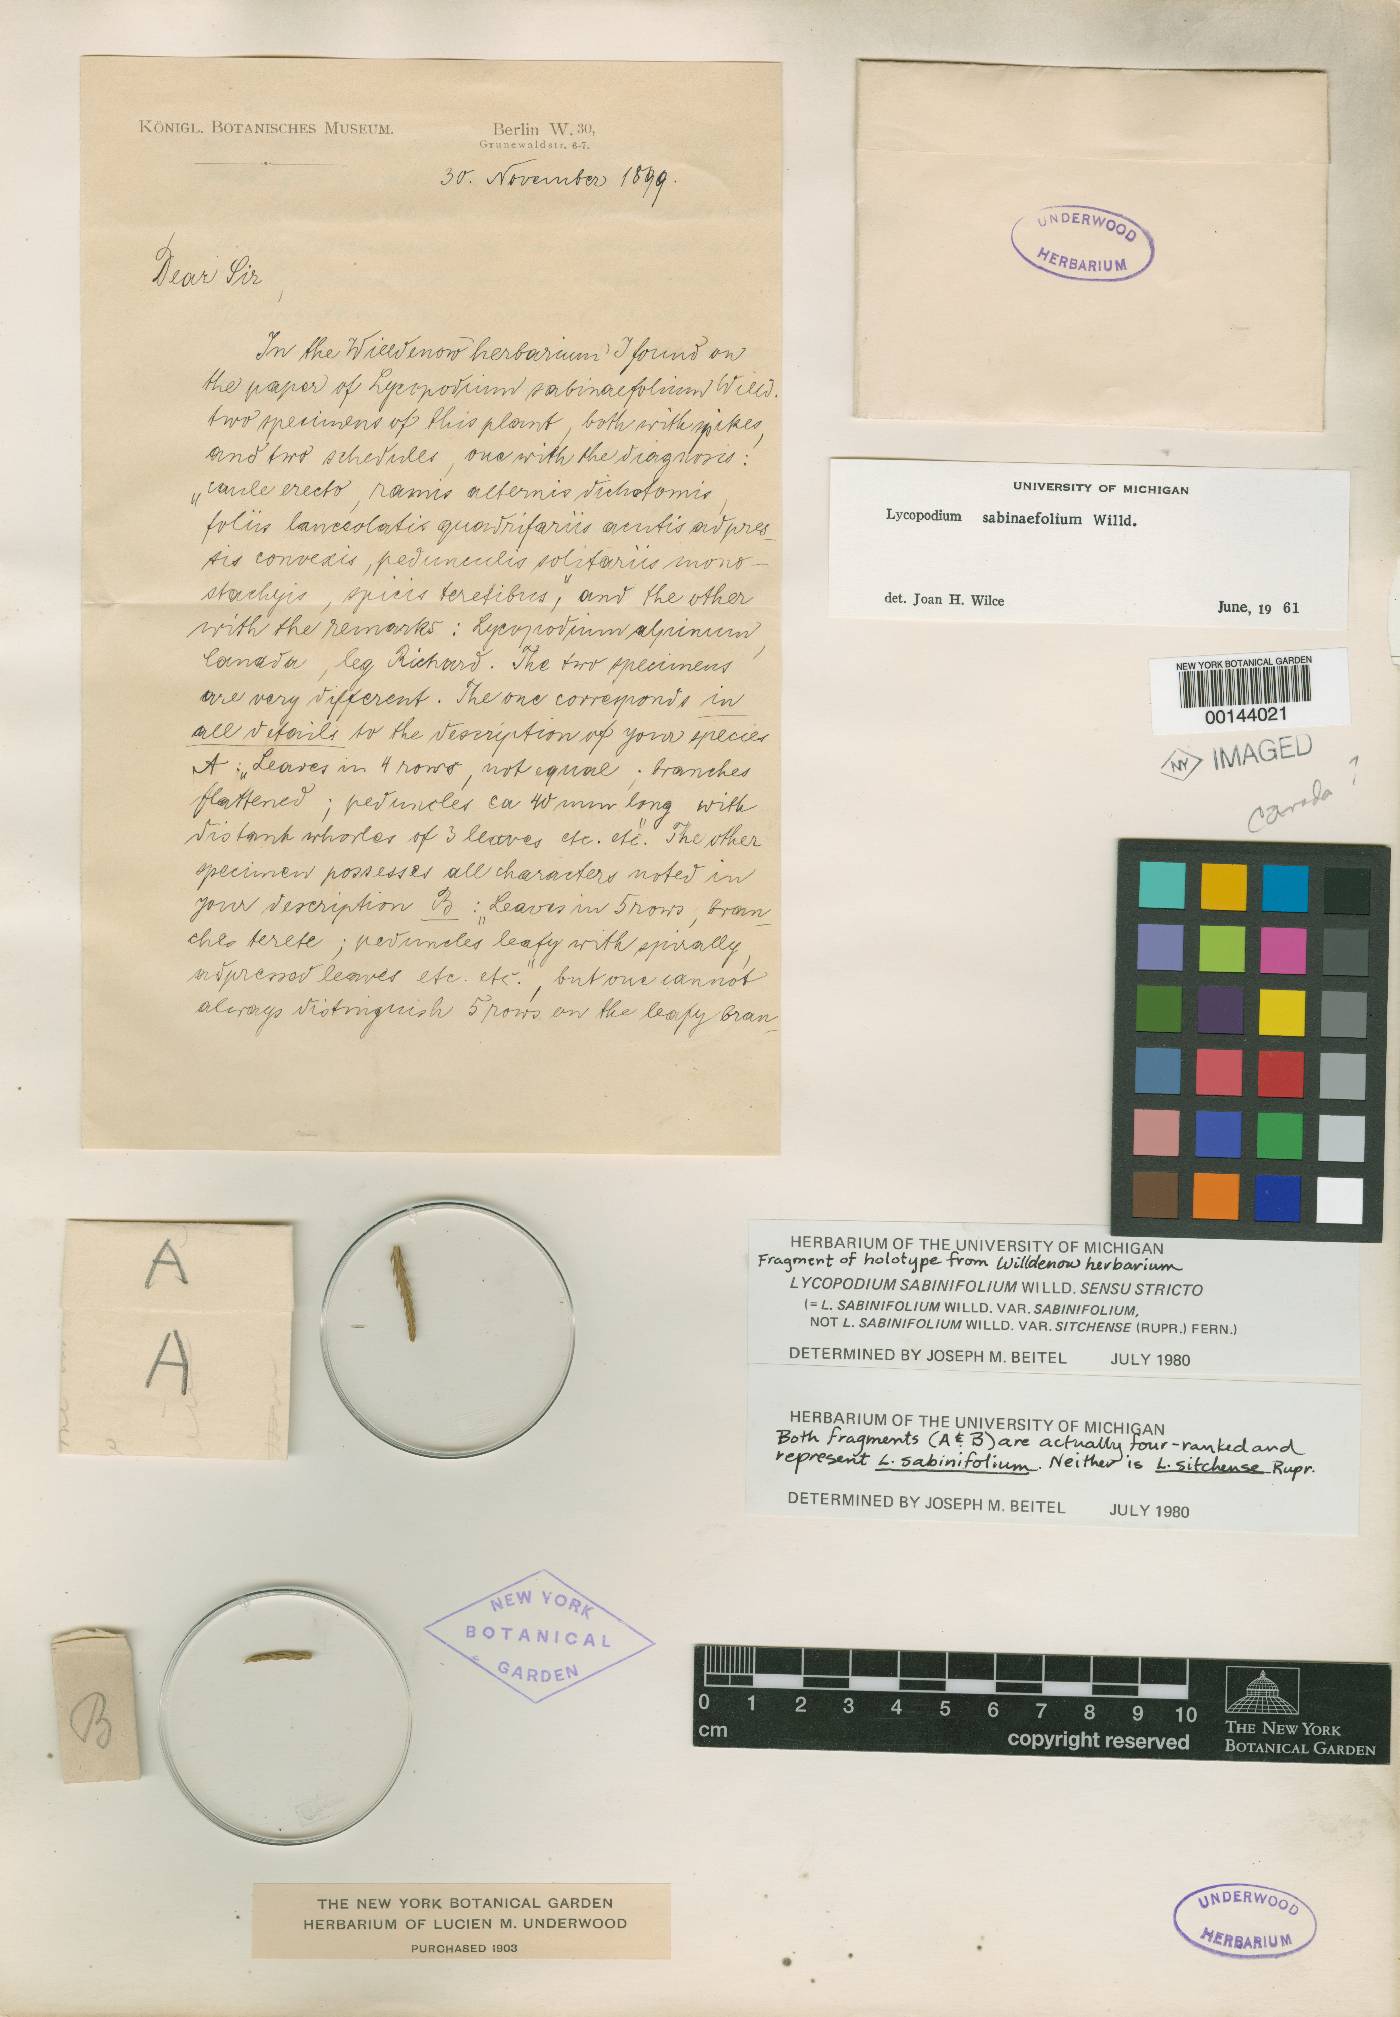 KÖNIGL. BOTANISCHES MUSEUM.
Berlin W. 30,
Grunewaldstr. 6-7.
30. November 1899.
Dear Sir,
In the Willdenow herbarium I found on
the paper of Lycopodium sabinaefolium Willd.
two specimens of this plant, both with spikes,
and two schedules, one with the diagnosis:
„caule erecto, ramis alternis dichotomis,
foliis lanceolatis quadrifariis acutis adpres-
sis convexis, pedunculis solitariis mono-
stachyis, spicis teretibus", and the other
with the remarks: Lycopodium alpinum,
Canada, leg Richard. The two specimens
are very different. The one corresponds in
all details to the description of your species
A: „Leaves in 4 rows, not equal; branches
flattened; peduncles ca 40 mm long with
distant whorles of 3 leaves etc. etc." The other
specimen possesses all characters noted in
your description B: „Leaves in 5 rows, bran-
ches terete; peduncles leafy with spirally,
adpressed leaves etc. etc.", but one cannot
always distinguish 5 rows on the leafy bran-
UNDERWOOD
HERBARIUM
UNIVERSITY OF MICHIGAN
Lycopodium sabinaefolium Willd.
det. Joan H. Wilce
June, 19 61
NEW YORK BOTANICAL GARDEN
00144021
NY IMAGED
Canada ?
A
A
HERBARIUM OF THE UNIVERSITY OF MICHIGAN
Fragment of holotype from Willdenow herbarium
LYCOPODIUM SABINIFOLIUM WILLD. SENSU STRICTO
(= L. SABINIFOLIUM WILLD. VAR. SABINIFOLIUM,
NOT L. SABINIFOLIUM WILLD. VAR. SITCHENSE (RUPR.) FERN.)
DETERMINED BY JOSEPH M. BEITEL JULY 1980
HERBARIUM OF THE UNIVERSITY OF MICHIGAN
Both fragments (A & B) are actually four-ranked and
represent L. sabinifolium. Neither is L. sitchense Rupr.
DETERMINED BY JOSEPH M. BEITEL JULY 1980
B
NEW YORK
BOTANICAL
GARDEN
0 1 2 3 4 5 6 7 8 9 10
cm
copyright reserved
THE NEW YORK
BOTANICAL GARDEN
THE NEW YORK BOTANICAL GARDEN
HERBARIUM OF LUCIEN M. UNDERWOOD
PURCHASED 1903
UNDERWOOD
HERBARIUM